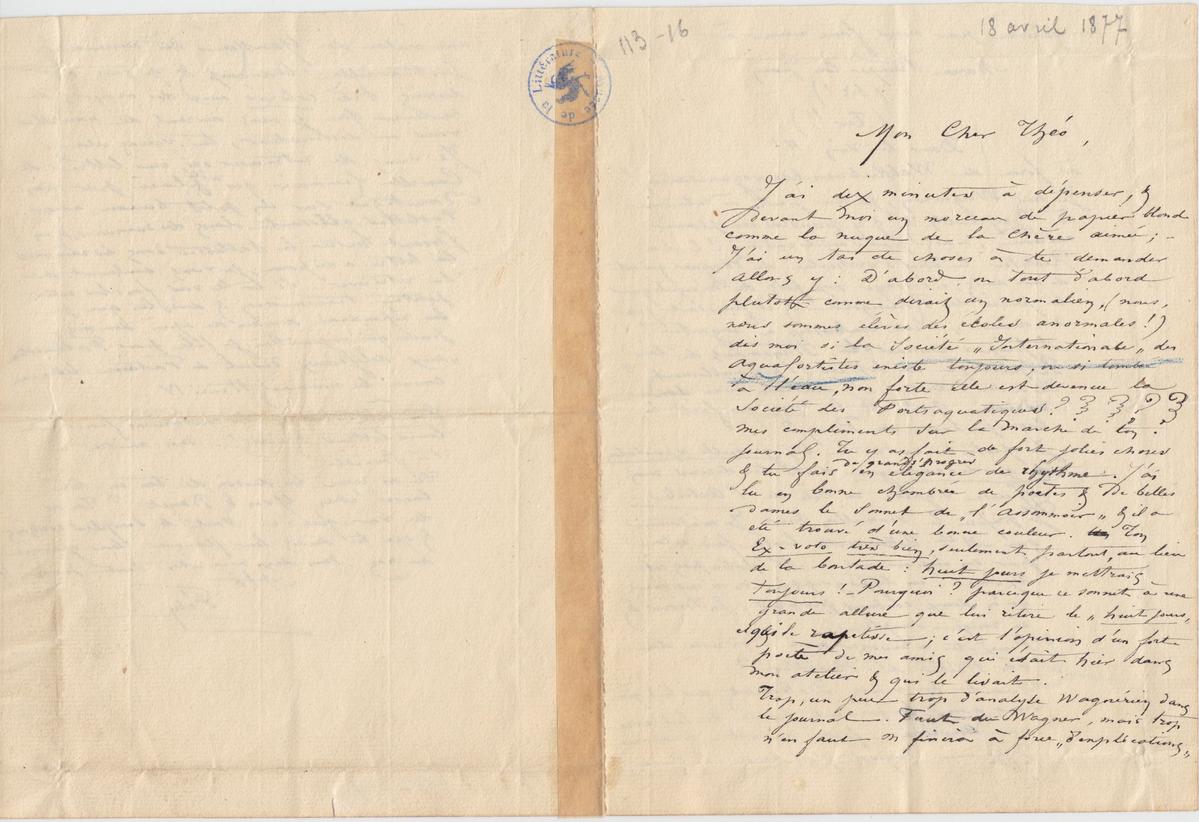 113-16
18 avril 1877
Musée de la Littérature
Mon Cher Théo,
J'ai dix minutes à dépenser, &
devant moi un morceau de papier blond
comme la nuque de la chère aimée; -
J'ai un tas de choses à te demander
allons y: D'abord ou tout d'abord
plutot comme dirait un normalien, (nous,
nous sommes élèves des écoles anormales!)
dis moi si la Société „Internationale" des
aquafortistes existe toujours, ou si tombée
à l'eau, non forte elle est devenue la
Société des Portsaquatiques. ? ? ? ? ?
mes compliments sur la marche de ton
journal. Tu y as fait de fort jolies choses
& tu fais de grands progrès en élégance de rhythme. J'ai
lu en bonne chambrée de poètes & de belles
dames le Sonnet de „l'Assommoir" & il a
été trouvé d'une bonne couleur. Ton
Ex-voto très bien, seulement, partout, au lieu
de la boutade: huit jours je mettrais
Toujours! - Pourquoi? parceque ce sonnet à une
grande allure que lui retire le „huit jours"
& qui le rapetisse; c'est l'opinion d'un fort
poète de mes amis qui était hier dans
mon atelier & qui le lisait.
Trop, un peu trop d'analyse Wagnérien dans
le journal. Faut du Wagner, mais trop
n'en faut on finira à force „d'explications"